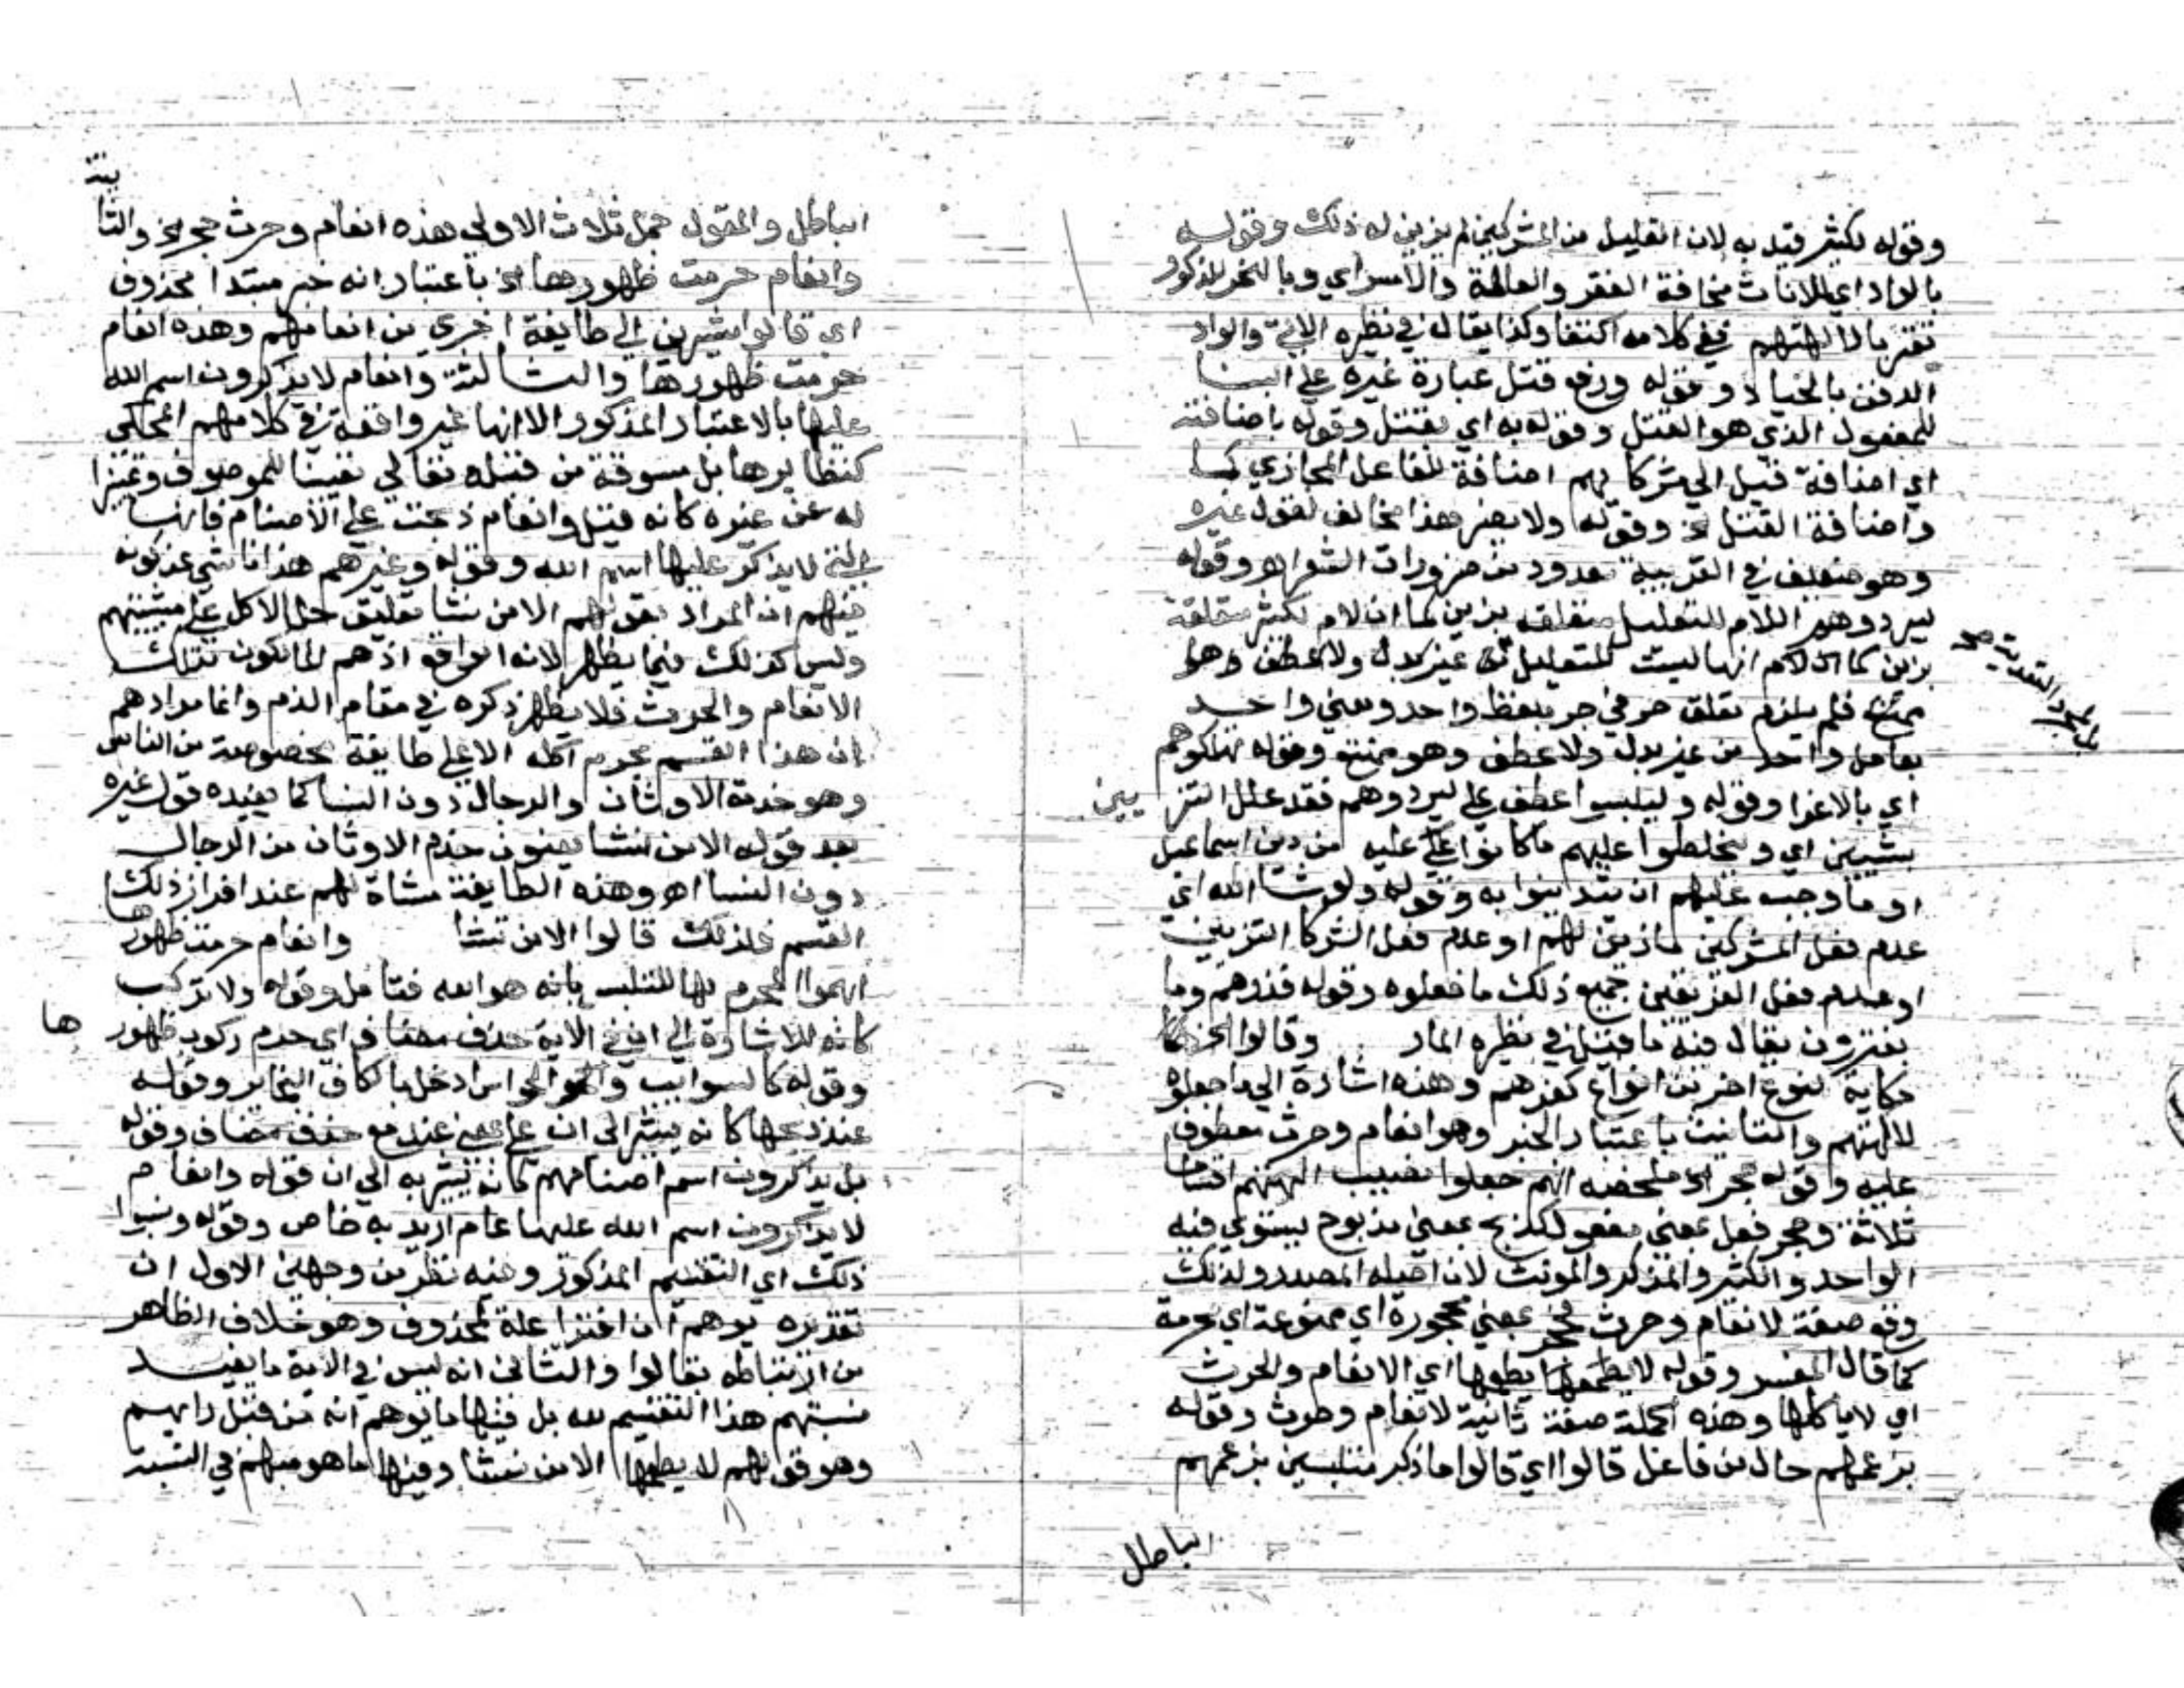 وقوله لكثير قيد به لان القليل من المشركين لم يزين له ذلك وقوله
بالواد اي للاناث مخافة الفقر والعالة والاسر اي وبالنحر للذكور
تقربا لالهتهم ففي كلامه اكتفا وكذا يقال في نظيره الاتي والواد
الدفن بالحياة وقوله ورفع قتل عبارة غيره علي البنا
للمفعول الذي هو القتل وقوله به اي بقتل وقوله باضافته
اي اضافة قتل الي شركايهم اضافة للفاعل المجازي كما
واضافة القتل الخ وقوله ولا يضر هذا مخالف لقول غيره
وهو ضعيف في العربية معدود من ضرورات الشعر اهـ وقوله
ليردوهم اللام للتعليل متعلقه بزين كما ان لام لكثير متعلقة
بزين كما ان لام انها ليست للتعليل من غير بدل ولا عطف وهو
بالجر والتعدية صح
ممتنع فلم يلزم تعلق حرفي جر بلفظ واحد ومعني واحد
بعامل واحد من غير بدل ولا عطف وهو ممتنع وقوله يهلكوهم
اي بالاغوا وقوله وليلبسوا عطف علي ليردوهم فقد علل التزيين
بشيين اي وليخلطوا عليهم ما كانوا عليه من دين اسماعيل
او ما وجب عليهم ان يتدينوا به وقوله ولو شا الله اي
عدم فعل المشركين ما زين لهم او عدم فعل الشركا التزيين
او عدم فعل الفريقين جميع ذلك ما فعلوه وقوله فذرهم وما
يفترون يقال فيه ما قيل في نظيره المار وقالوا الخ هذا
حكاية لنوع اخر من انواع كفرهم وهذه اشارة الي ما جعلوه
لالهتهم والتانيث باعتبار الخبر وهو انعام وحرث معطوف
عليه وقوله حجر الخ ملخصه انهم جعلوا نصيب الهتهم اقساما
ثلاثة وحجر فعل بمعني مفعول كذبح بمعني مذبوح يستوي فيه
الواحد والكثير والمذكر والمونث لان اصله المصدر ولذلك
وقع صفة لانعام وحرث فحجر بمعني محجورة اي ممنوعة اي محرمة
كما قال المفسر وقوله لا يطعمها اي الانعام والحرث
اي لا ياكلها وهذه الجملة صفة ثانية لانعام وحرث وقوله
بزعمهم حال من فاعل قالوا اي قالوا ما ذكر متلبسين بزعمهم
الباطل
الباطل والمقول جمل ثلاث الاولي هذه انعام وحرث حجر الخ والثانية
وانعام حرمت ظهورها الخ باعتبار انه خبر مبتدا محذوف
اي قالوا مشيرين الي طايفة اخري من انعامهم وهذه انعام
حرمت ظهورها والثالثة وانعام لا يذكرون اسم الله
عليها بالاعتبار المذكور الا انها غير واقعة في كلامهم المحكي
كنظايرها بل مسوقة من قبله تعالي تعيينا للموصوف وتمييزا
له عن غيره كانه قيل وانعام ذبحت علي الاصنام فانها
التي لا يذكر عليها اسم الله وقوله وغيرهم هذا ناشي عن كونه
فهم ان المراد بقولهم الا من نشا تعليق حل الاكل علي مشيتهم
وليس كذلك فيما يظهر لانه الواقع اذ هم المالكون لتلك
الانعام والحرث فلا يظهر ذكره في مقام الذم وانما مرادهم
ان هذا القسم محرم اكله الا علي طايفة مخصوصة من الناس
وهو خدمة الاوثان والرجال دون النسا كما يفيده قول غيره
بعد قوله الا من نشا يعنون خدم الاوثان من الرجال
دون النسا اهـ وهذه الطايفة مشاة لهم عند افراز ذلك
القسم فلذلك قالوا الا من نشا وانعام حرمت ظهورها
ابهموا المحرم بها للتلبس بانه هو الله فتامل وقوله ولا تركب
كانه للاشارة الي ان في الاية حذف مضاف اي حرم ركوب ظهورها
وقوله كالسوايب والحوامي ادخل بالكاف البحاير وقوله
عند ذبحها كانه يشير الي ان علي بمعني عند مع حذف مضاف وقوله
بل يذكرون اسم اصنامهم كانه يشير به الي ان قوله وانعام
لا يذكرون اسم الله عليها عام اريد به خاص وقوله ونسبوا
ذلك اي التقسيم المذكور وفيه نظر من وجهين الاول ان
تقديره يوهم ان افترا علة لمحذوف وهو خلاف الظاهر
من ارتباطه بقالوا والثاني انه ليس في الاية ما يفيد
نسبتهم هذا التقسيم لله بل فيها ما يوهم انه من قبل رايهم
وهو قولهم لا يطعمها الا من نشا وفيها ما هو مبهم في النسبة